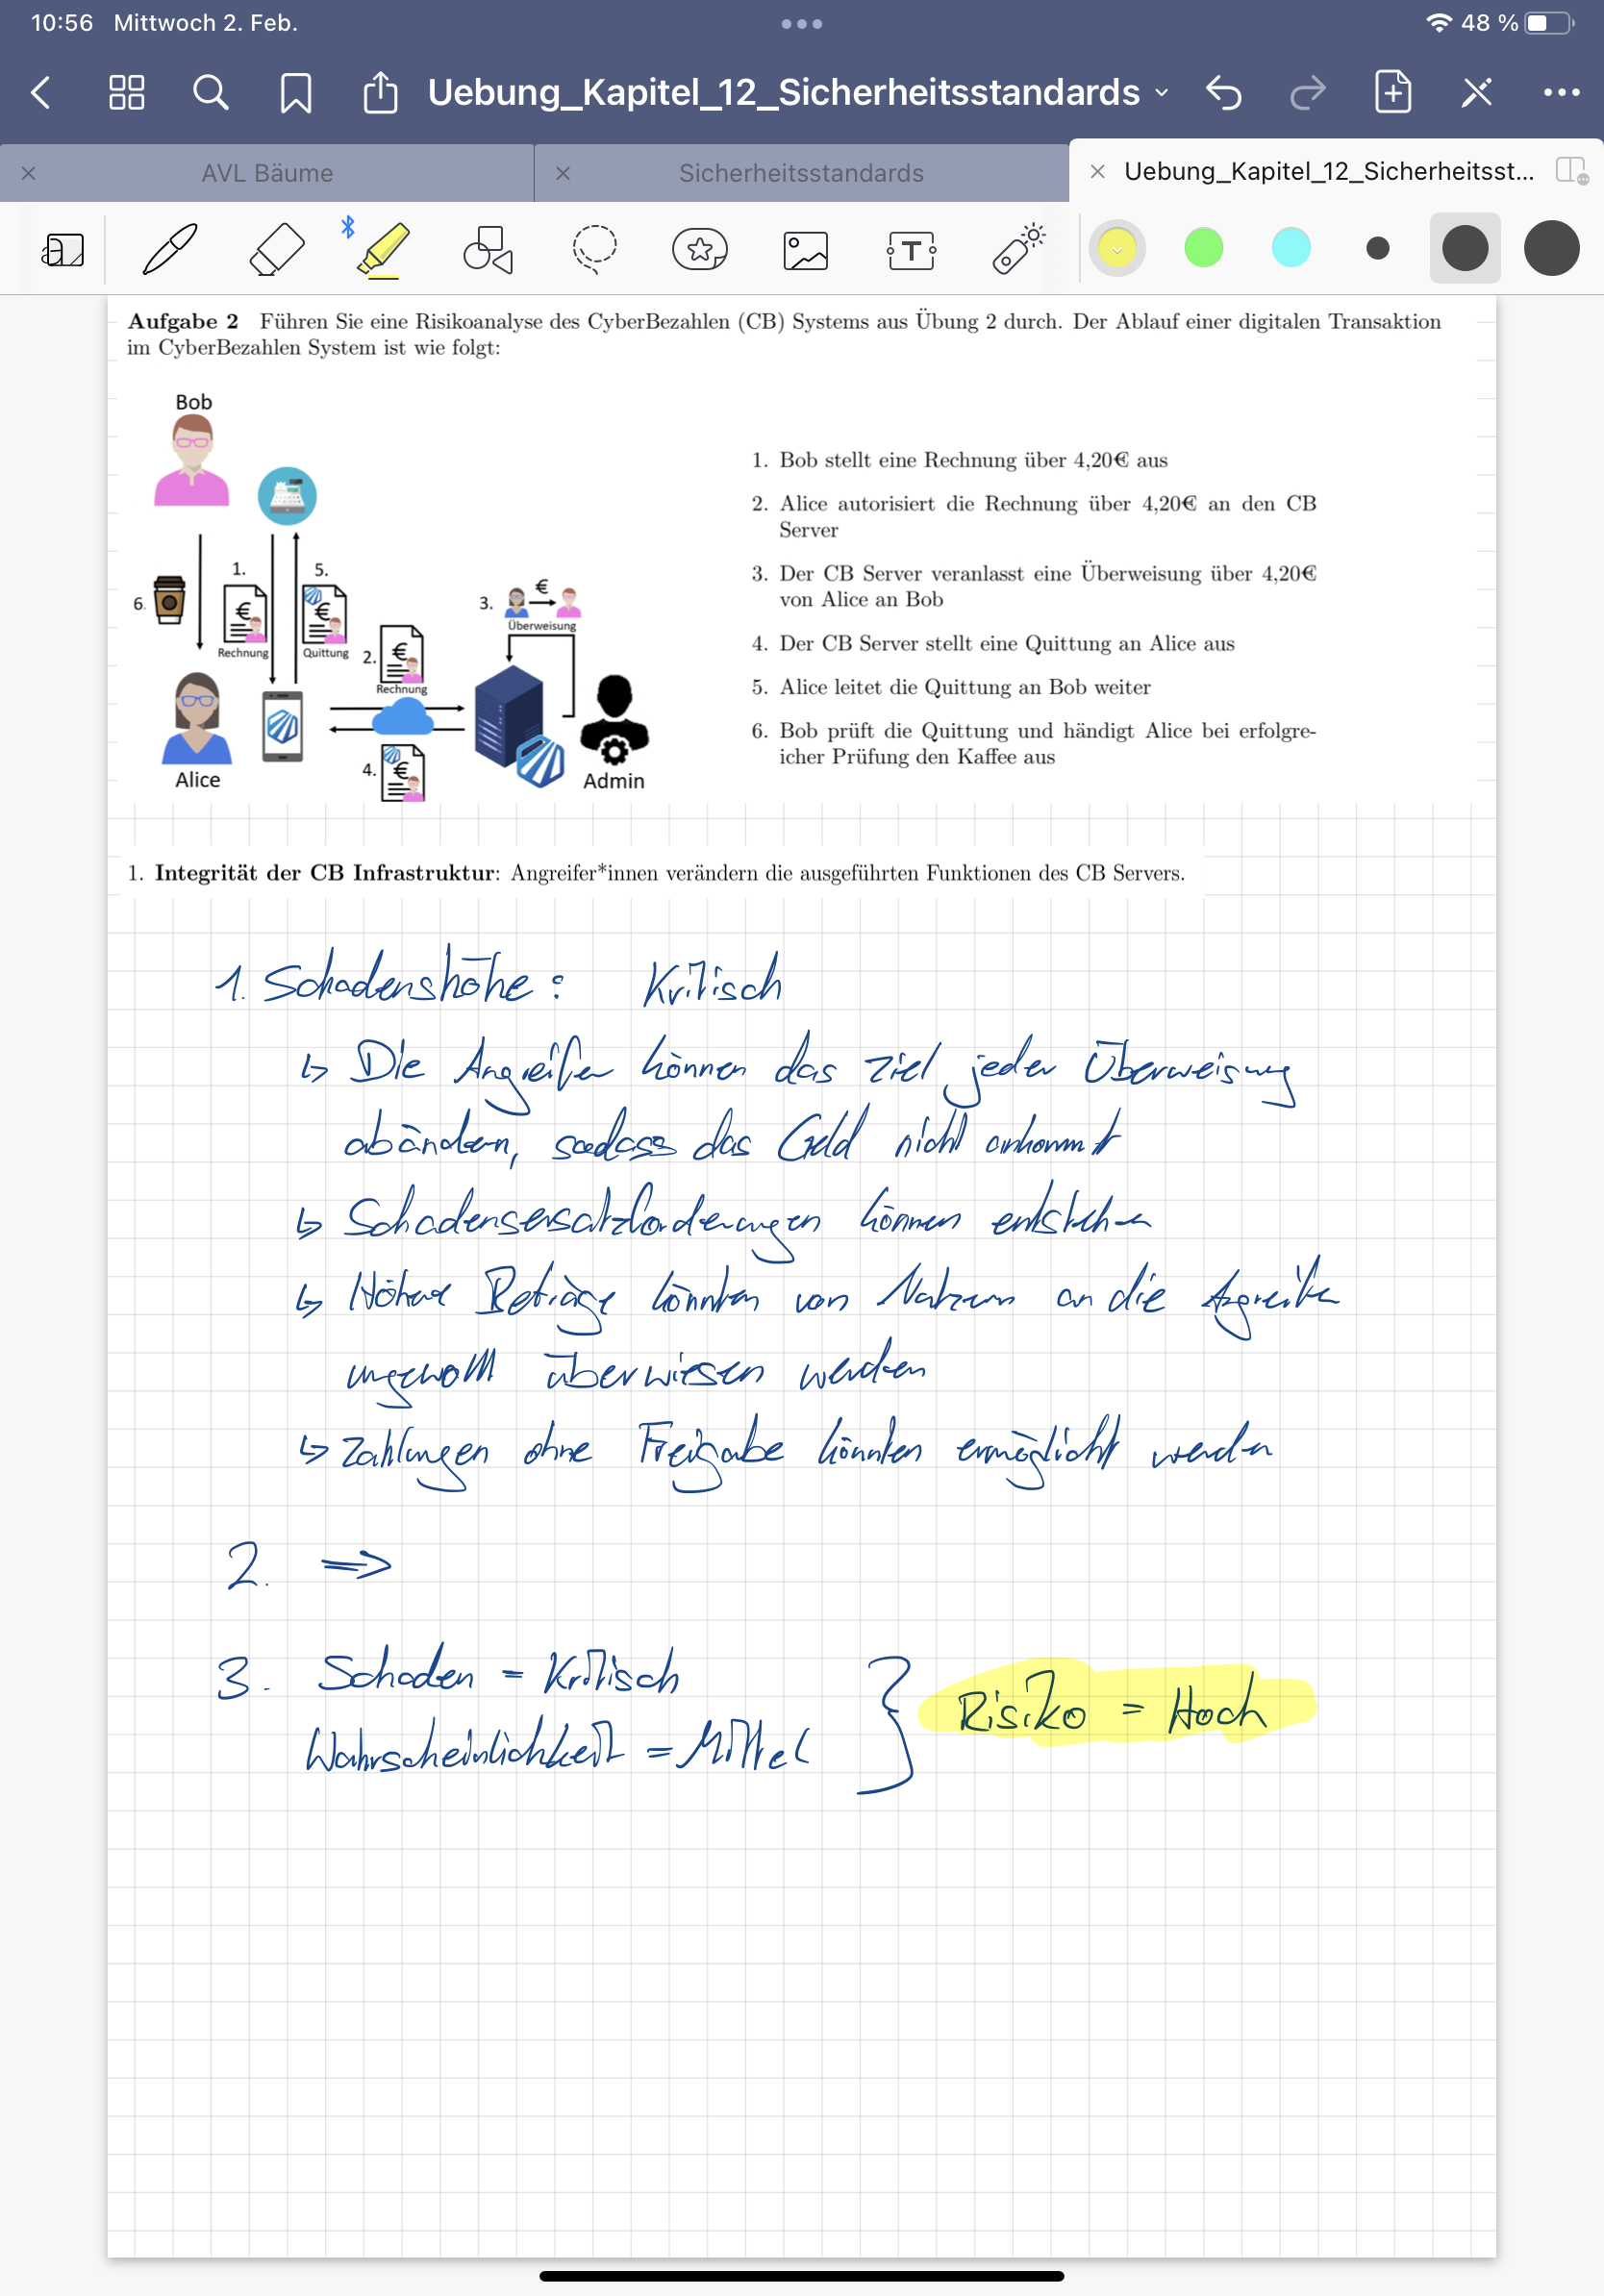 10:56 Mittwoch 2. Feb.
48 %
Uebung_Kapitel_12_Sicherheitsstandards
AVL Bäume
Sicherheitsstandards
Uebung_Kapitel_12_Sicherheitsst...
Aufgabe 2 Führen Sie eine Risikoanalyse des CyberBezahlen (CB) Systems aus Übung 2 durch. Der Ablauf einer digitalen Transaktion
im CyberBezahlen System ist wie folgt:
Bob
1.
5.
6.
Rechnung
Quittung
2.
Rechnung
3.
€
Überweisung
4.
Alice
Admin
1. Bob stellt eine Rechnung über 4,20€ aus
2. Alice autorisiert die Rechnung über 4,20€ an den CB
Server
3. Der CB Server veranlasst eine Überweisung über 4,20€
von Alice an Bob
4. Der CB Server stellt eine Quittung an Alice aus
5. Alice leitet die Quittung an Bob weiter
6. Bob prüft die Quittung und händigt Alice bei erfolgre-
icher Prüfung den Kaffee aus
1. Integrität der CB Infrastruktur: Angreifer*innen verändern die ausgeführten Funktionen des CB Servers.
1. Schadenshöhe: Kritisch
↳ Die Angreifer können das Ziel jeder Überweisung
abändern, sodass das Geld nicht ankommt
↳ Schadensersatzforderungen können entstehen
↳ Höhere Beträge könnten von Nutzern an die Angreifer
ungewollt überwiesen werden
↳ Zahlungen ohne Freigabe könnten ermöglicht werden
2. ⇒
3. Schaden = Kritisch
Wahrscheinlichkeit = Mittel
Risiko = Hoch